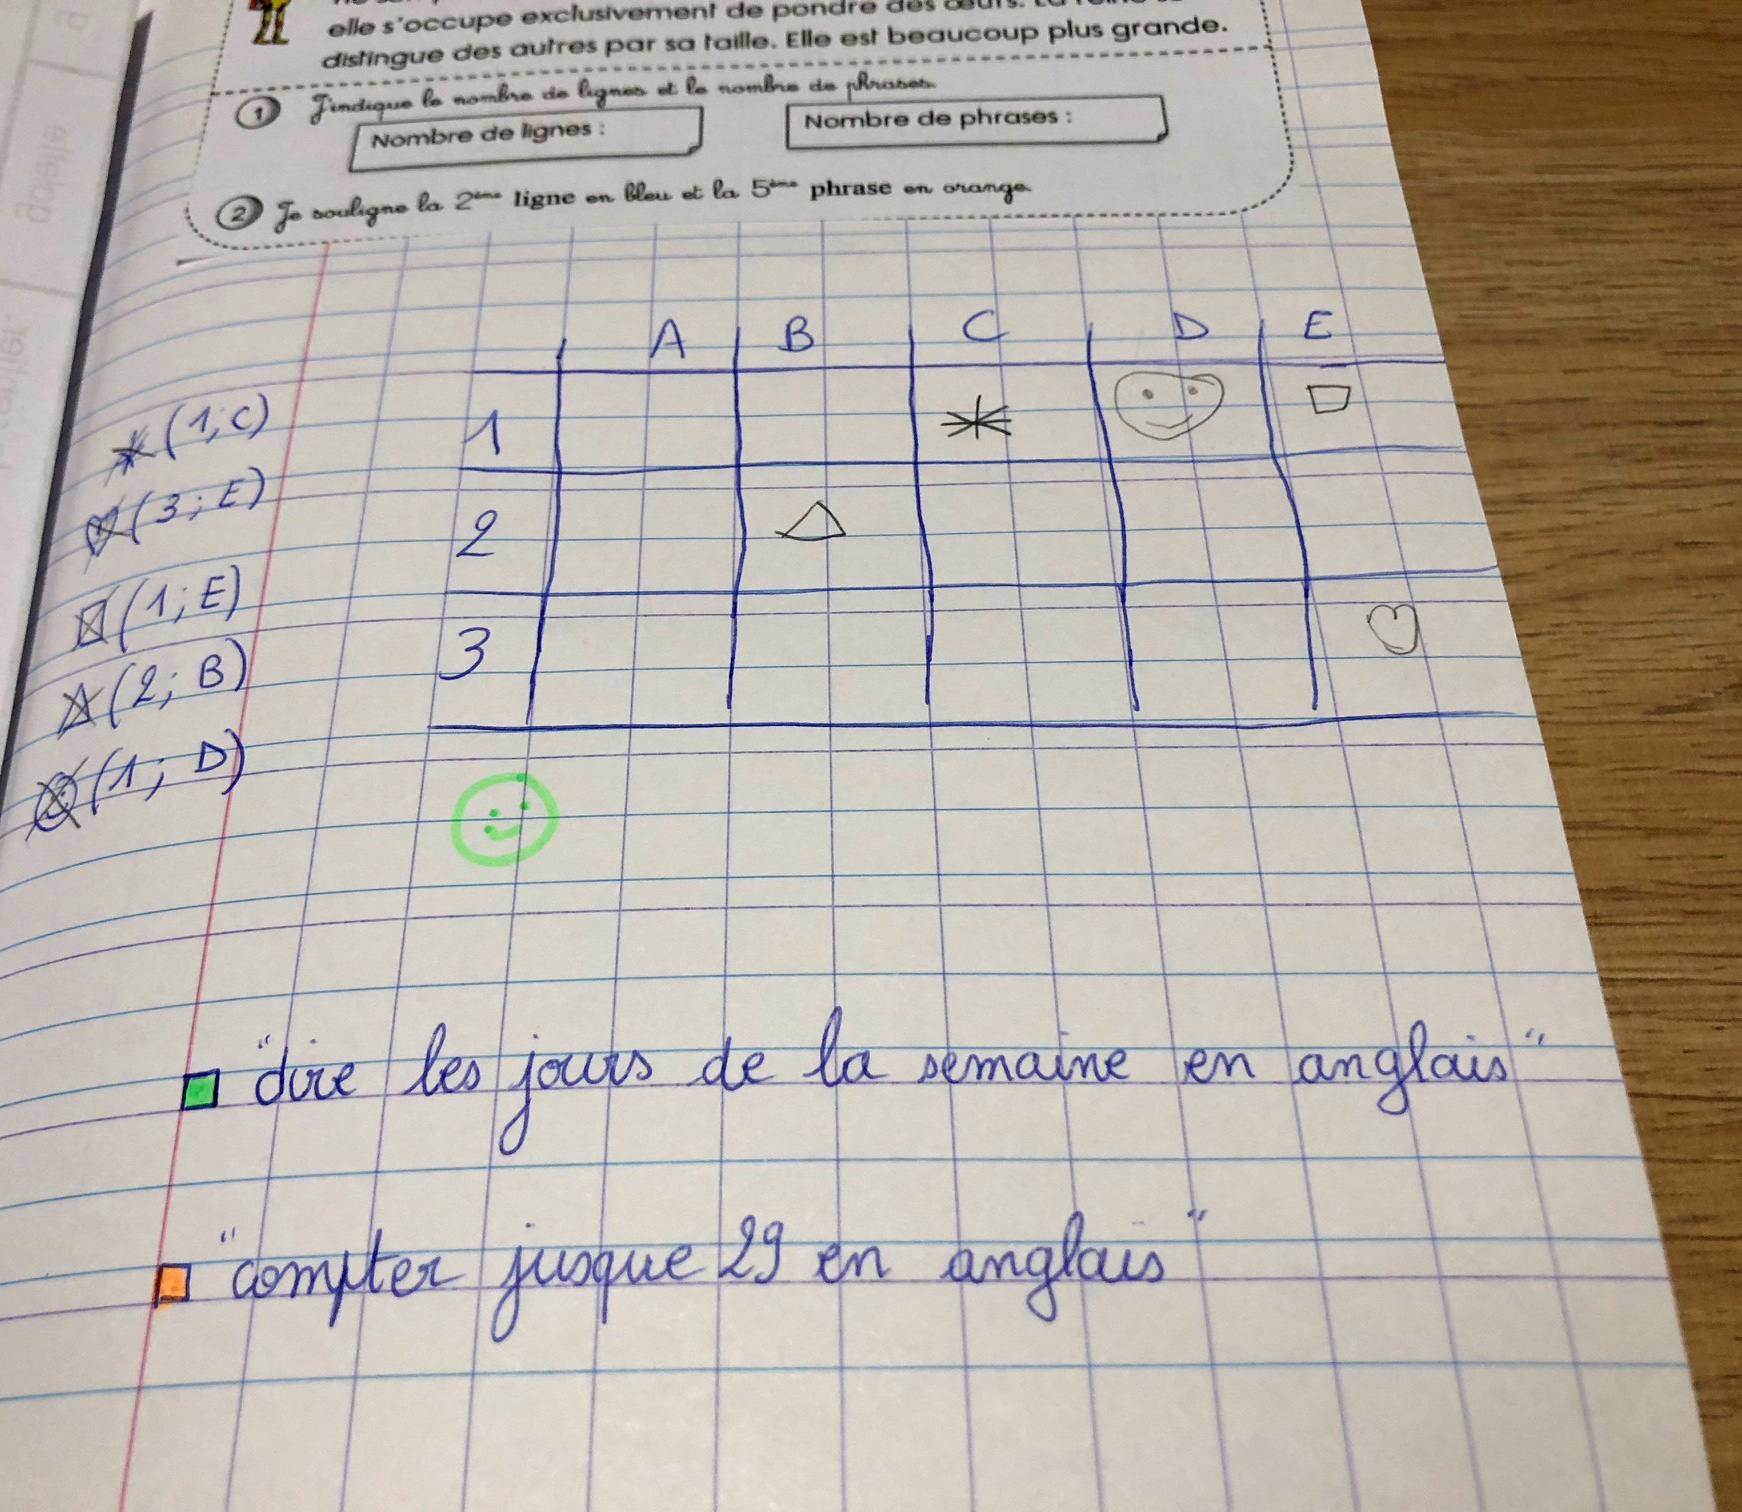 elle s'occupe exclusivement de pondre des œufs. La reine se
distingue des autres par sa taille. Elle est beaucoup plus grande.
1 J'indique le nombre de lignes et le nombre de phrases.
Nombre de lignes :
Nombre de phrases :
2 Je souligne la 2ème ligne en bleu et la 5ème phrase en orange.
A B C D E
(1;C)
1
(3;E)
2
(1;E)
3
(2;B)
(1;D)
"dire les jours de la semaine en anglais"
"compter jusque 29 en anglais"